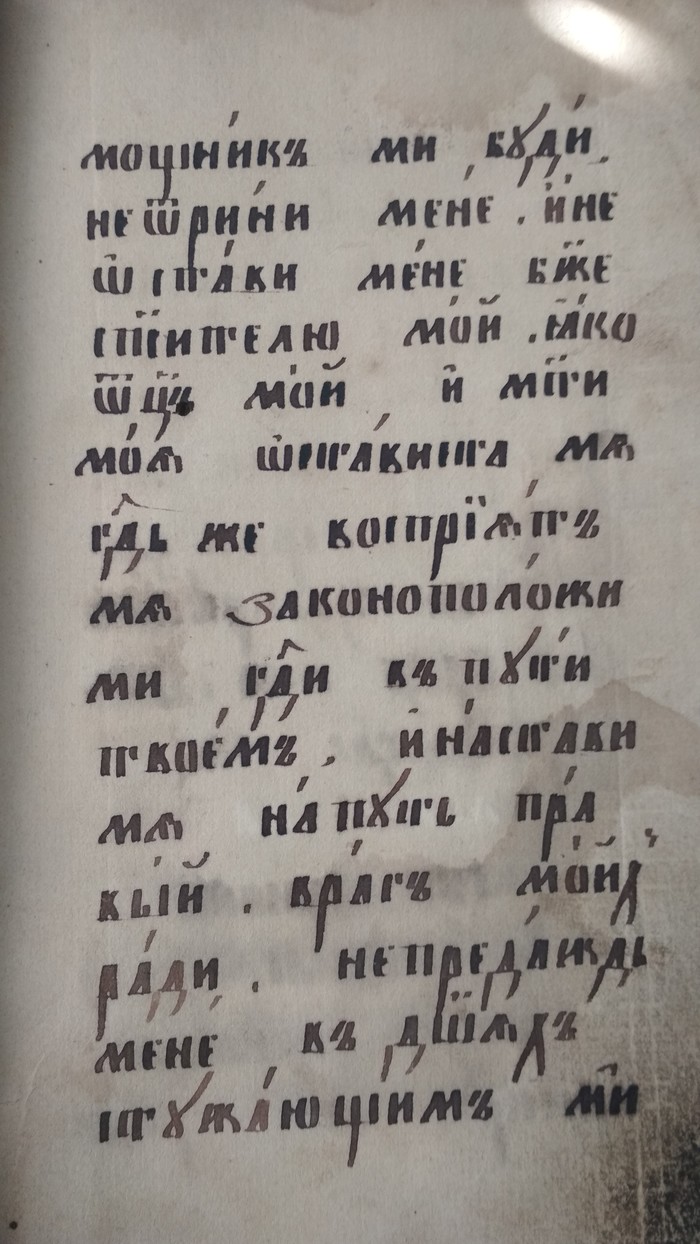 мощни́къ ми бꙋ́ди,
не ѿри́ни менѐ. и҆ не
ѡ҆ста́ви менѐ бж҃е
сп҃си́телю мо́й. ꙗ҆́ко
ѿц҃ъ мо́й и҆ мт҃и
моѧ̀ ѡ҆ста́виста мѧ
гд҇ь же воспрїѧ́тъ
мѧ законоположи́
ми гд҇и въ пꙋти́
твое́мъ, и҆ наста́ви
мѧ на́ пꙋть пра́
вый. вра́гъ мои́х
ра́ди. не преда́ждь
менѐ въ дш҃ѧхъ
стꙋжа́ющимъ ми